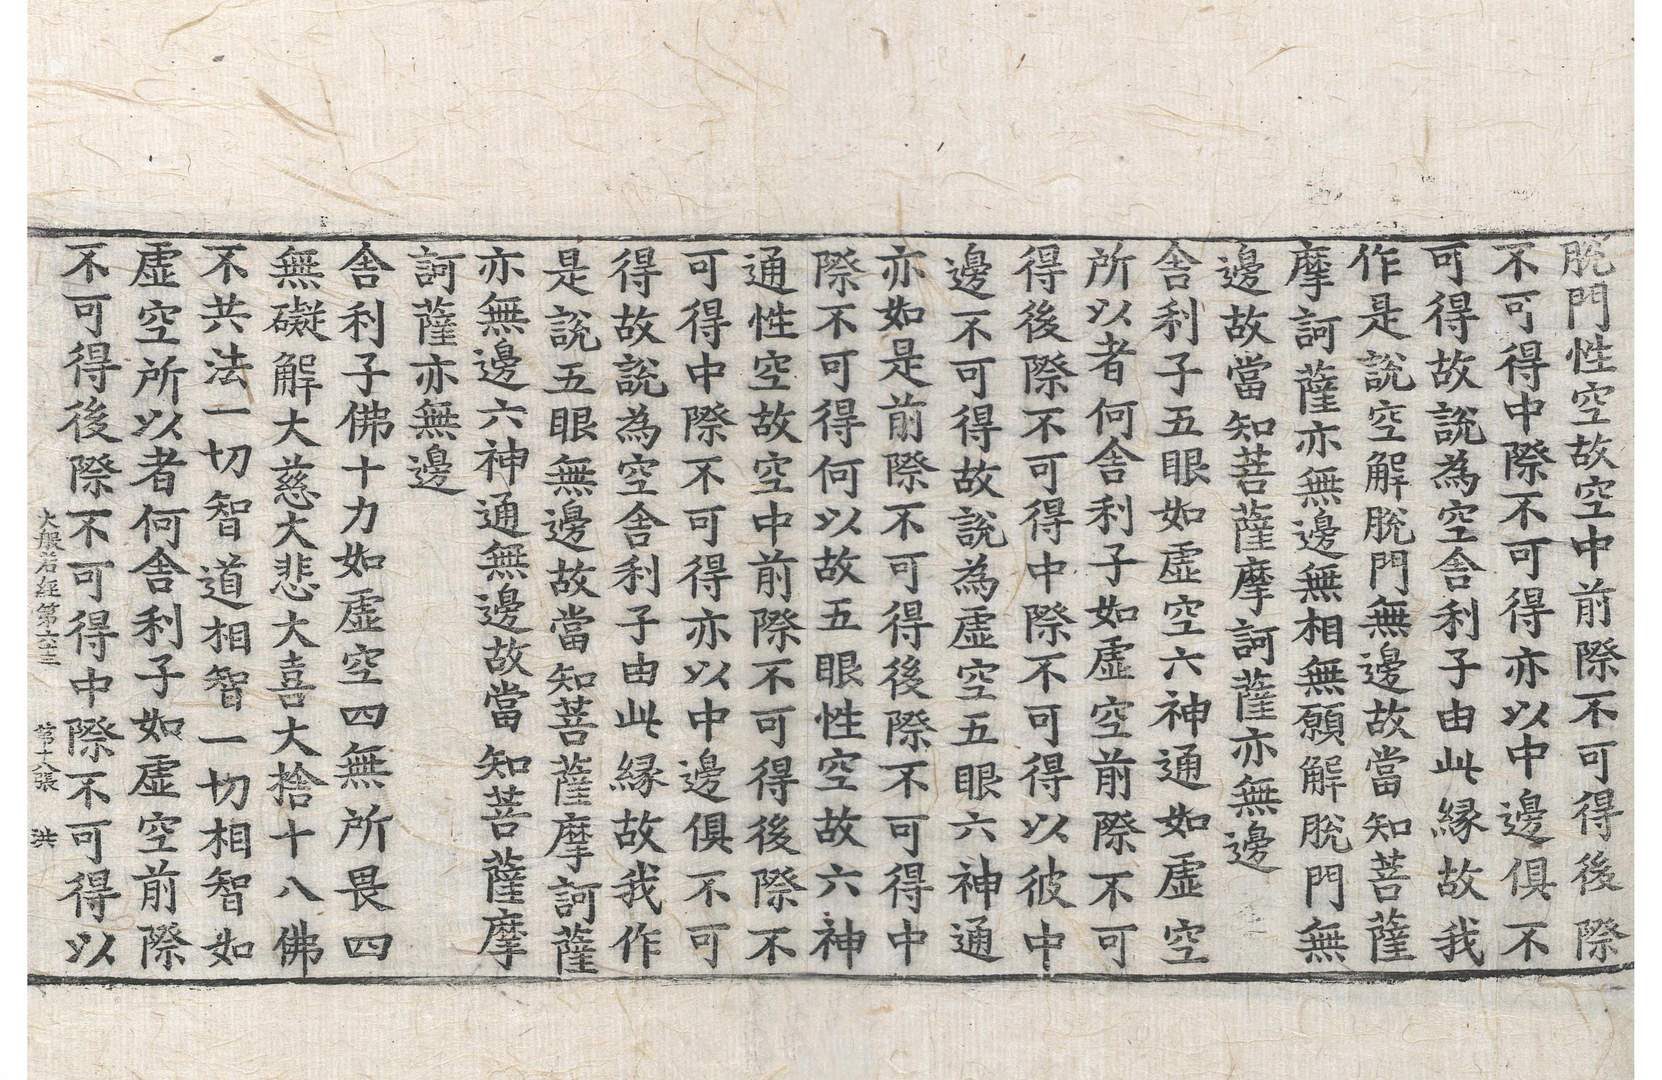 脫門性空故空中前際不可得後際
不可得中際不可得亦以中邊俱不
可得故說為空舍利子由此緣故我
作是說空解脫門無邊故當知菩薩
摩訶薩亦無邊無相無願解脫門無
邊故當知菩薩摩訶薩亦無邊
舍利子五眼如虛空六神通如虛空
所以者何舍利子如虛空前際不可
得後際不可得中際不可得以彼中
邊不可得故說為虛空五眼六神通
亦如是前際不可得後際不可得中
際不可得何以故五眼性空故六神
通性空故空中前際不可得後際不
可得中際不可得亦以中邊俱不可
得故說為空舍利子由此緣故我作
是說五眼無邊故當知菩薩摩訶薩
亦無邊六神通無邊故當知菩薩摩
訶薩亦無邊
舍利子佛十力如虛空四無所畏四
無礙解大慈大悲大喜大捨十八佛
不共法一切智道相智一切相智如
虛空所以者何舍利子如虛空前際
不可得後際不可得中際不可得以
大般若經第六十三 第十八張 洪